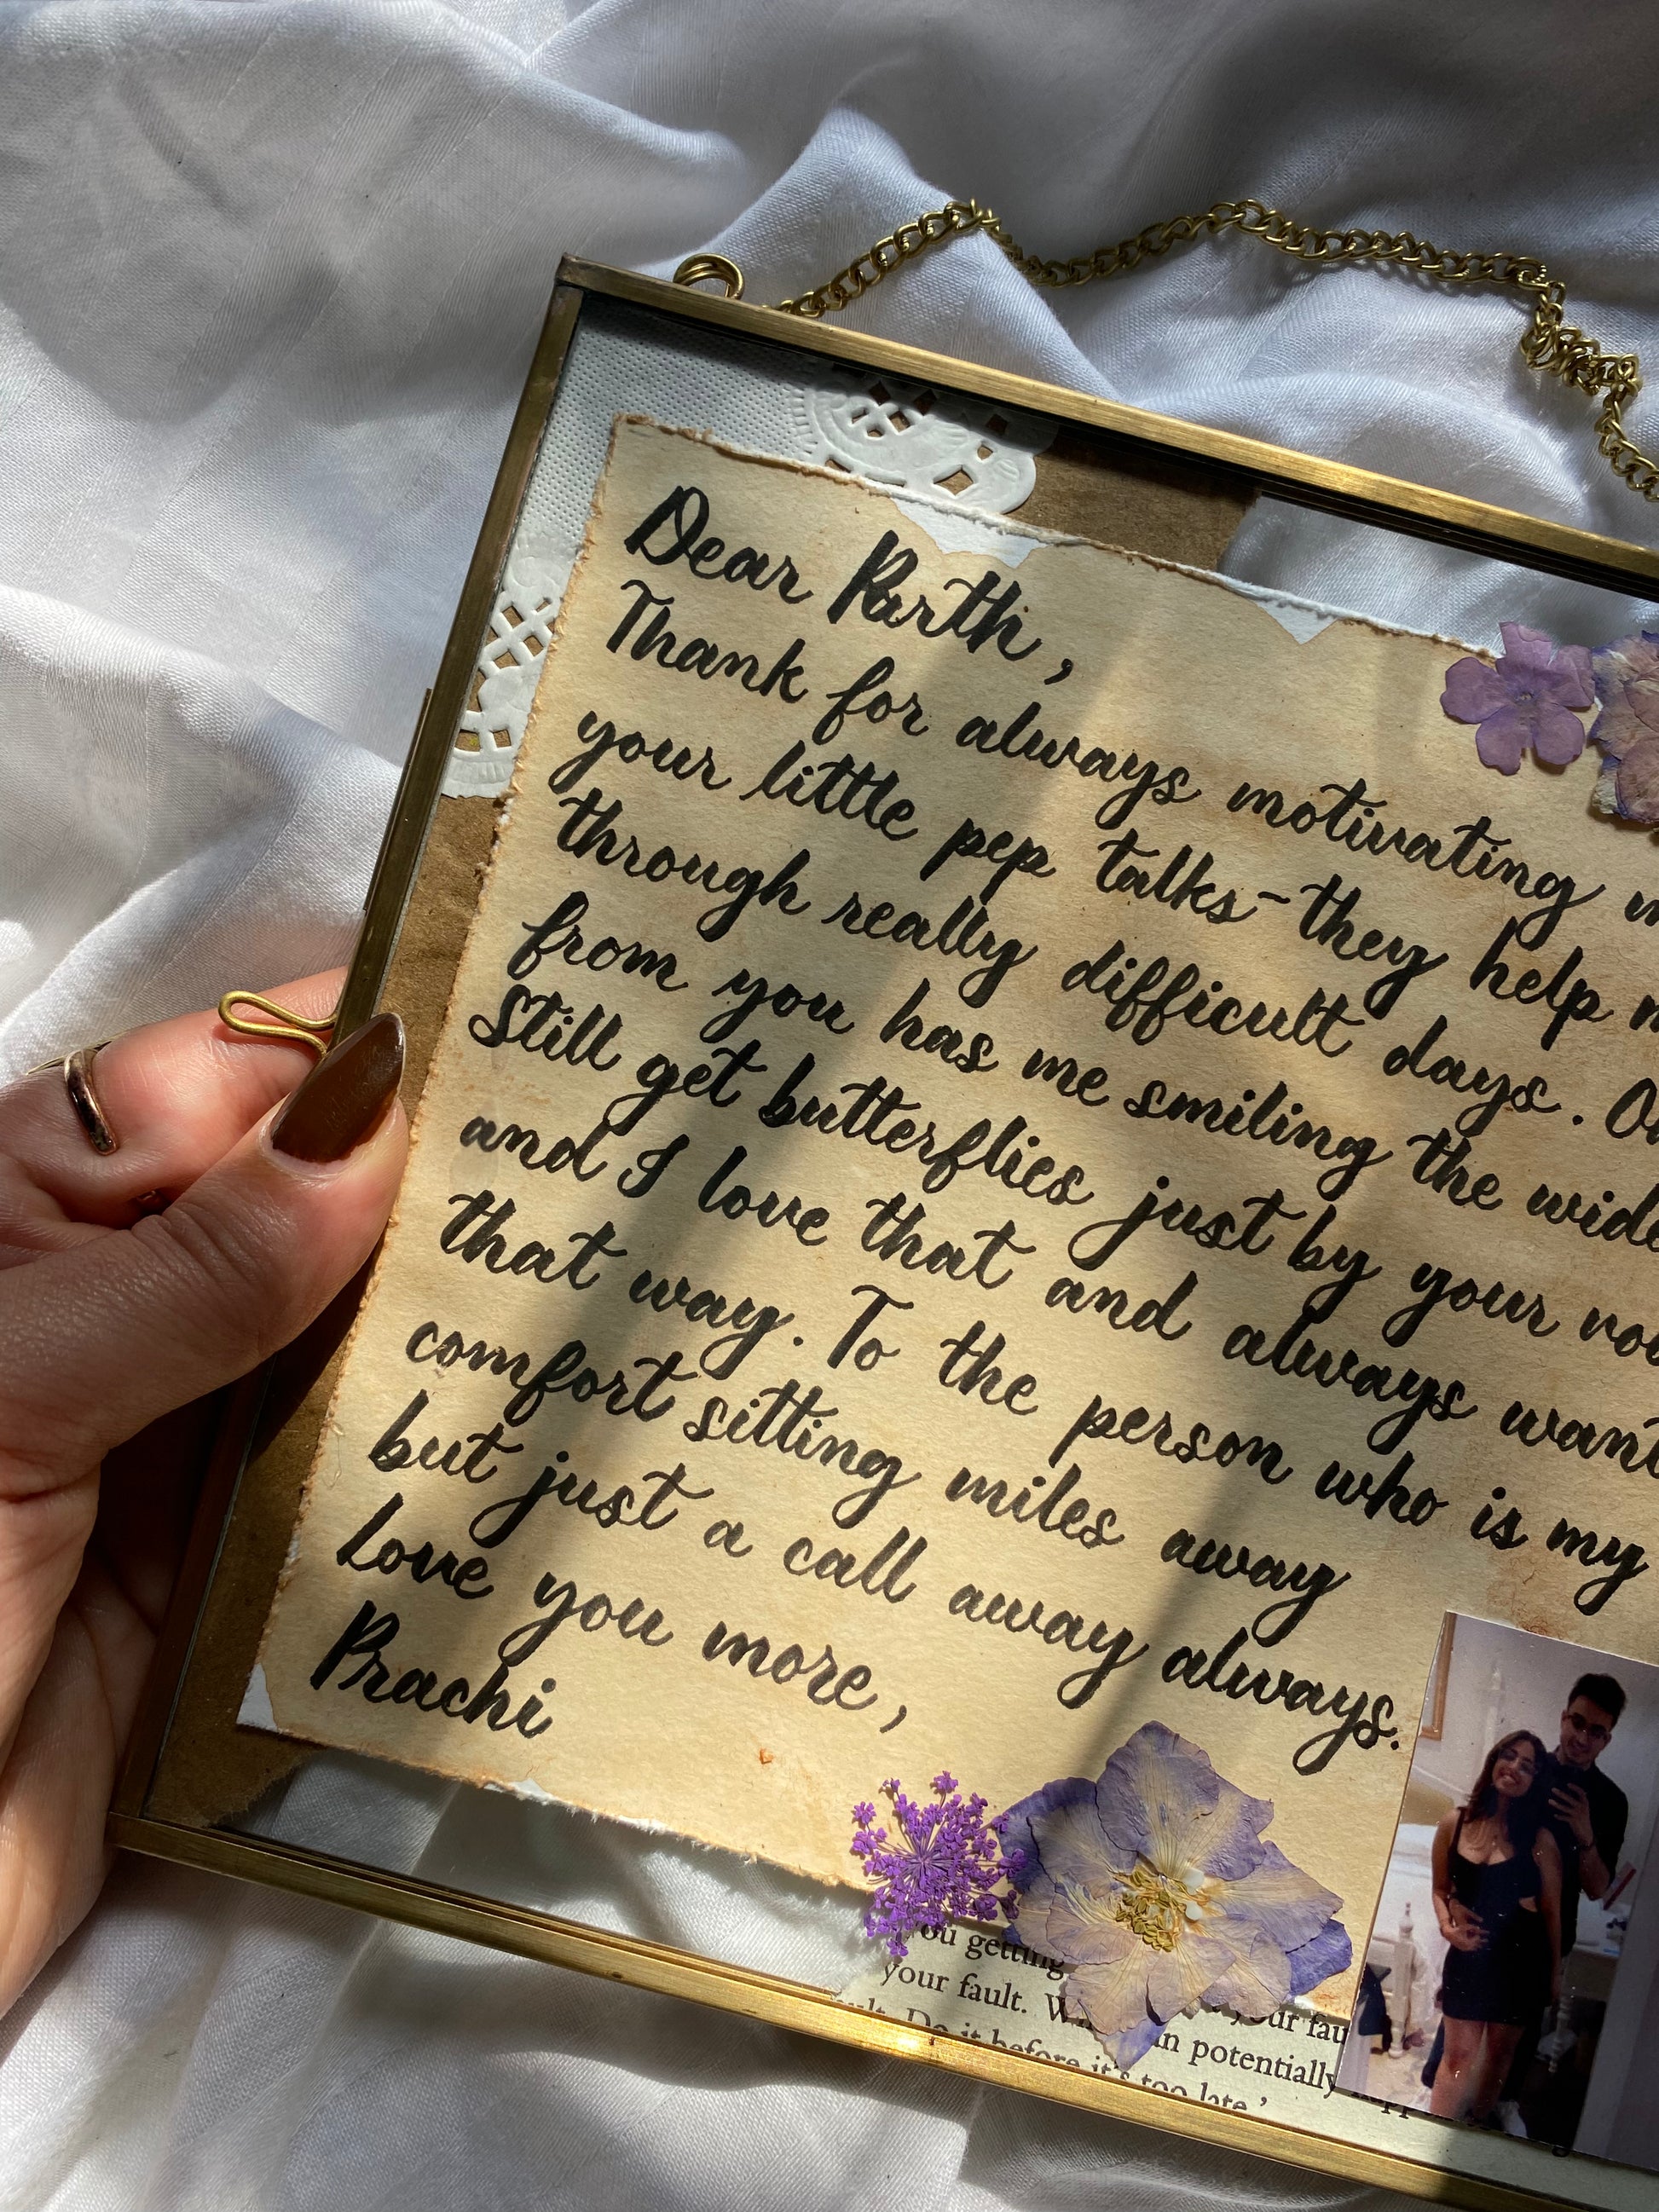 Dear Parth,
Thank for always motivating
your little pep talks - they help
through really difficult days.
from you has me smiling the
still get butterflies just by your
and I love that and always want
that way. To the person who is my
comfort sitting miles away
but just a call away always.
Love you more,
Prachi
you getting
your fault. your fau
Do it before it's too late.' potentially